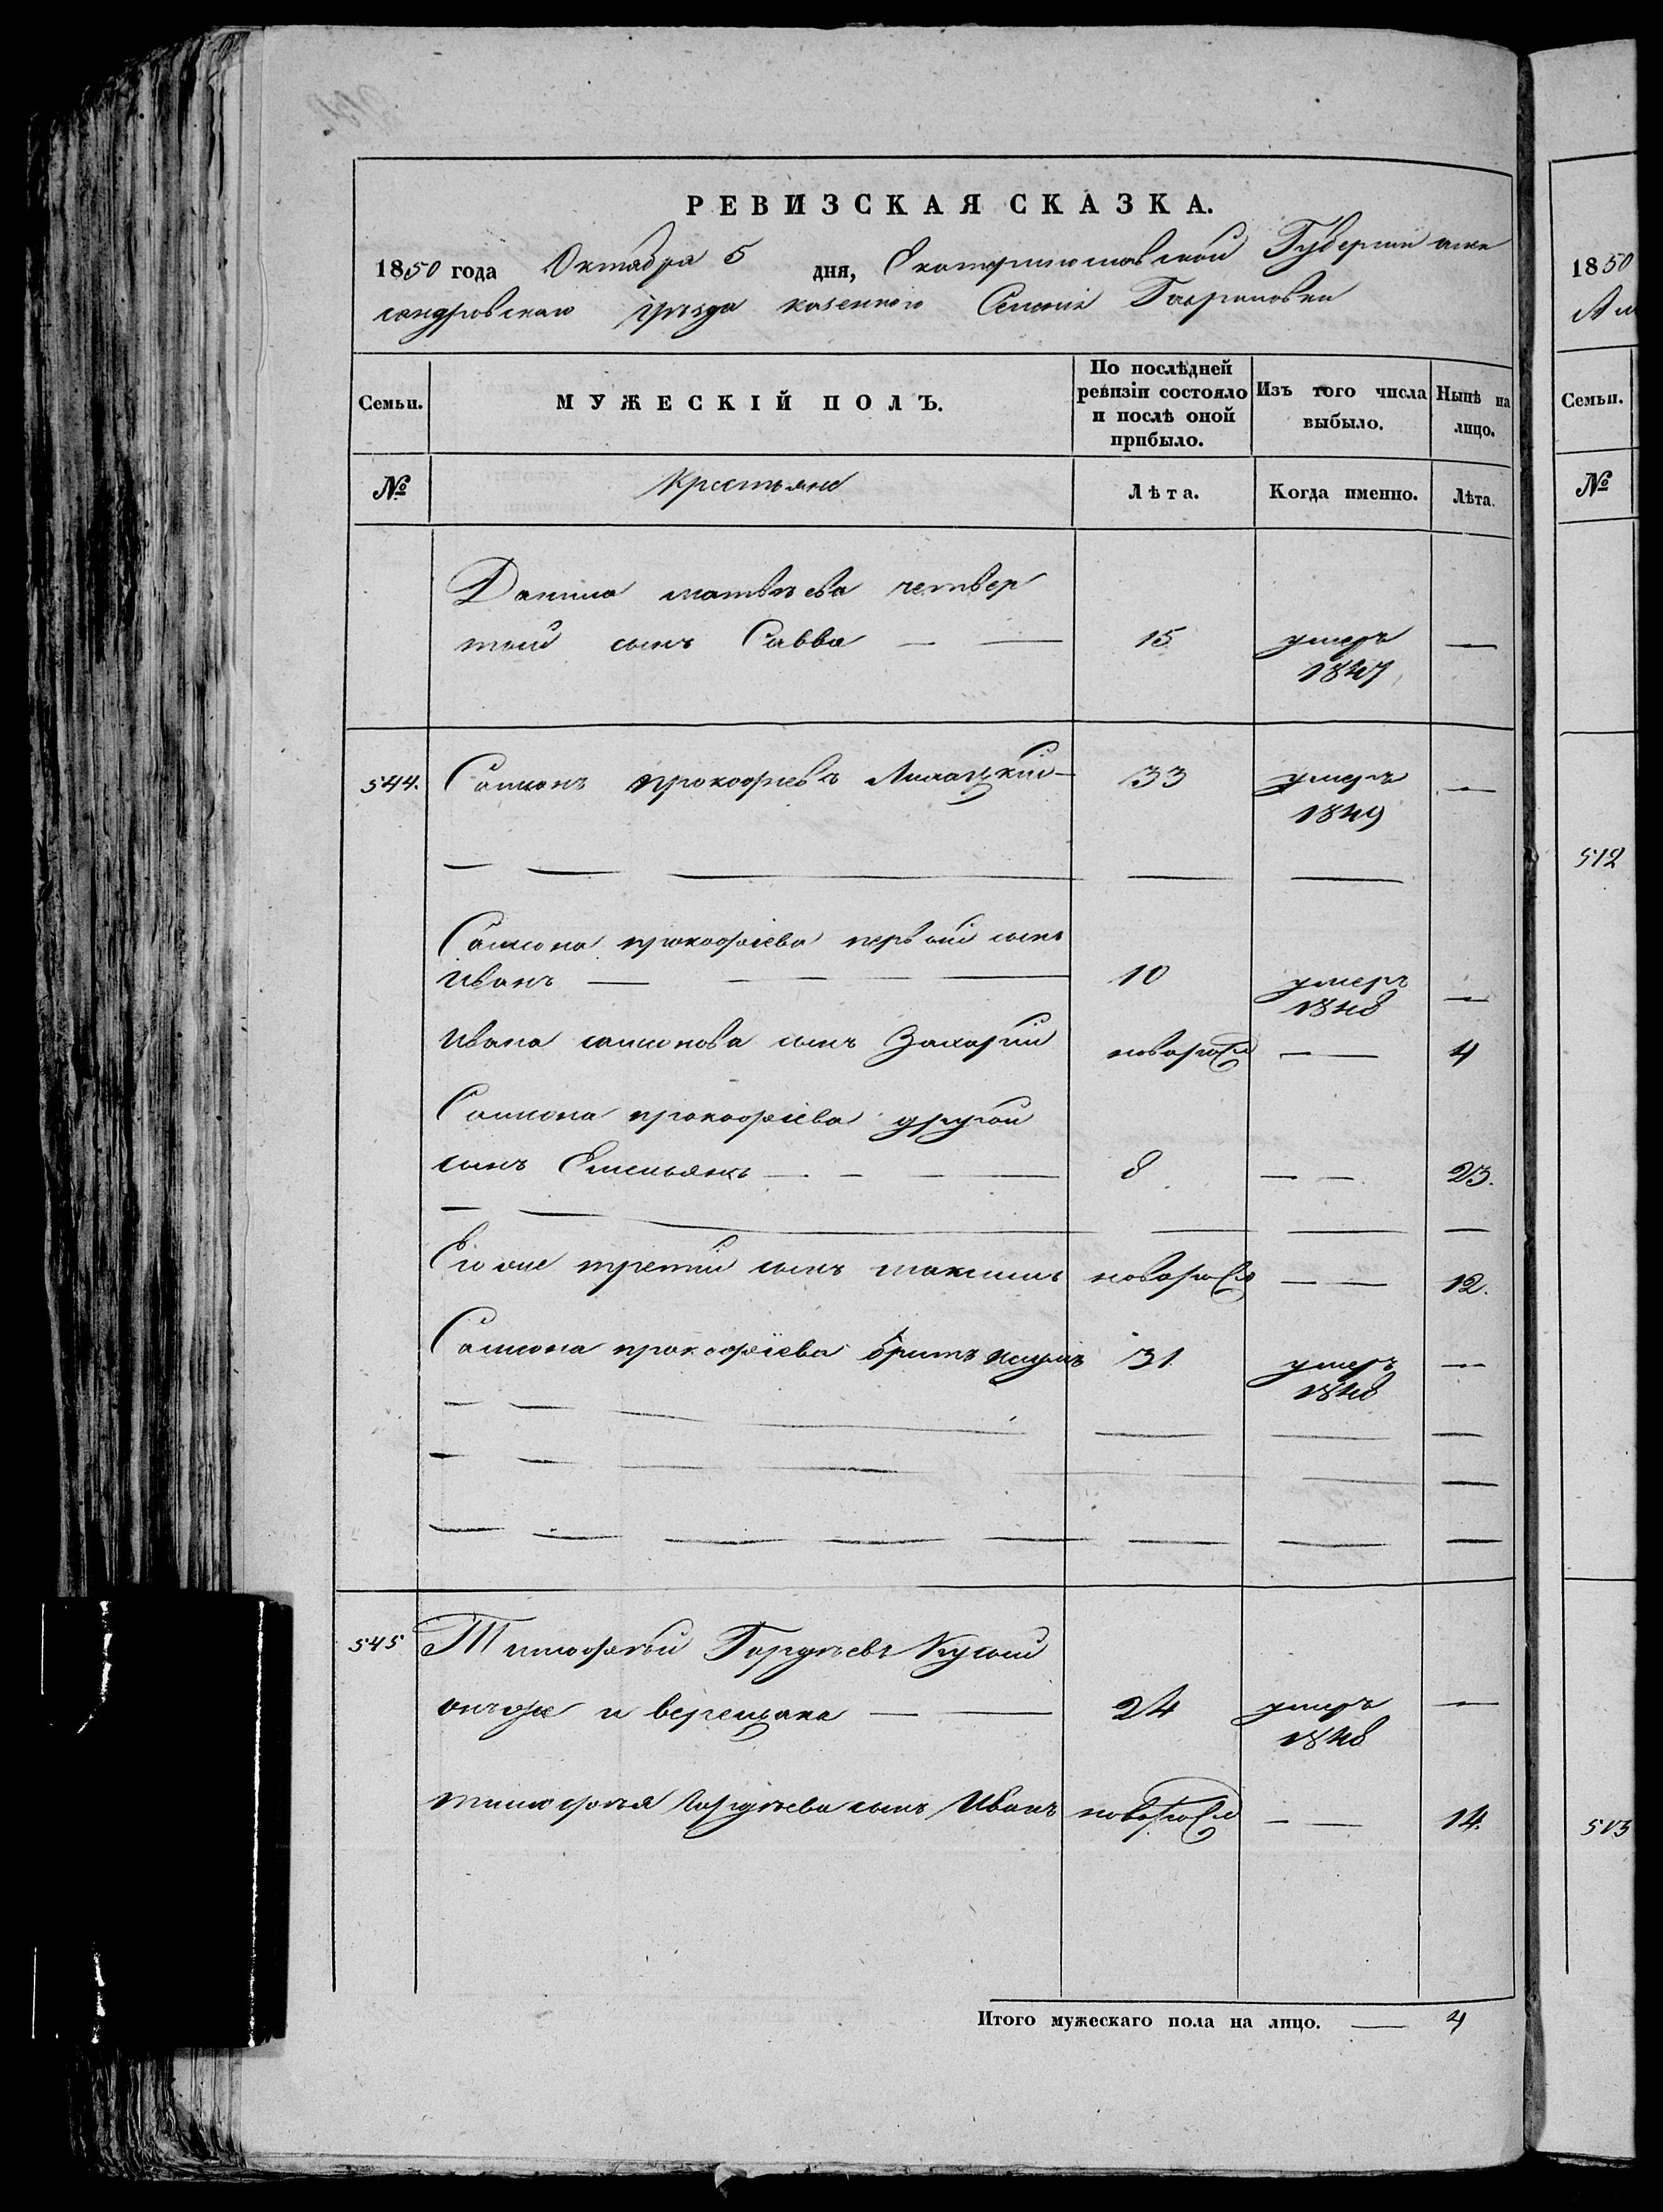 РЕВИЗСКАЯ СКАЗКА.
1850 года Октября 5 дня, Екатеринославской Губернии алек
сандровскаго уѣзда казеннаго Селенія Гавриловки
Семьи.
МУЖЕСКІЙ ПОЛЪ.
По послѣдней ревизіи состояло и послѣ оной прибыло.
Изъ того числа выбыло.
Нынѣ на лицо.
№ Крестьяне Лѣта. Когда именно. Лѣта.
Данила матвѣева четвер
тый сынъ Савва — — 15 умеръ —
1847
544. Самсонъ прокофиевъ — 33 умеръ —
1849
Самсона прокофіева первый сынъ
Иванъ — — — 10 умеръ —
1848
Ивана самсонова сынъ Захарій новорож — — 4
Самсона прокофіева другой
сынъ Емельянъ — — — 8 — — 23.
Его же третій сынъ максимъ новорож — — 12.
Самсона прокофіева братъ наумъ 31 умеръ —
1848
545 Тимофей Гордѣевъ Куцый
онъ же и верещака — — 24 умеръ —
1848
тимофея Гордѣева сынъ Иванъ новорож — — 14.
Итого мужескаго пола на лицо. — 4
1850
Ал
Семьи.
№
512
513